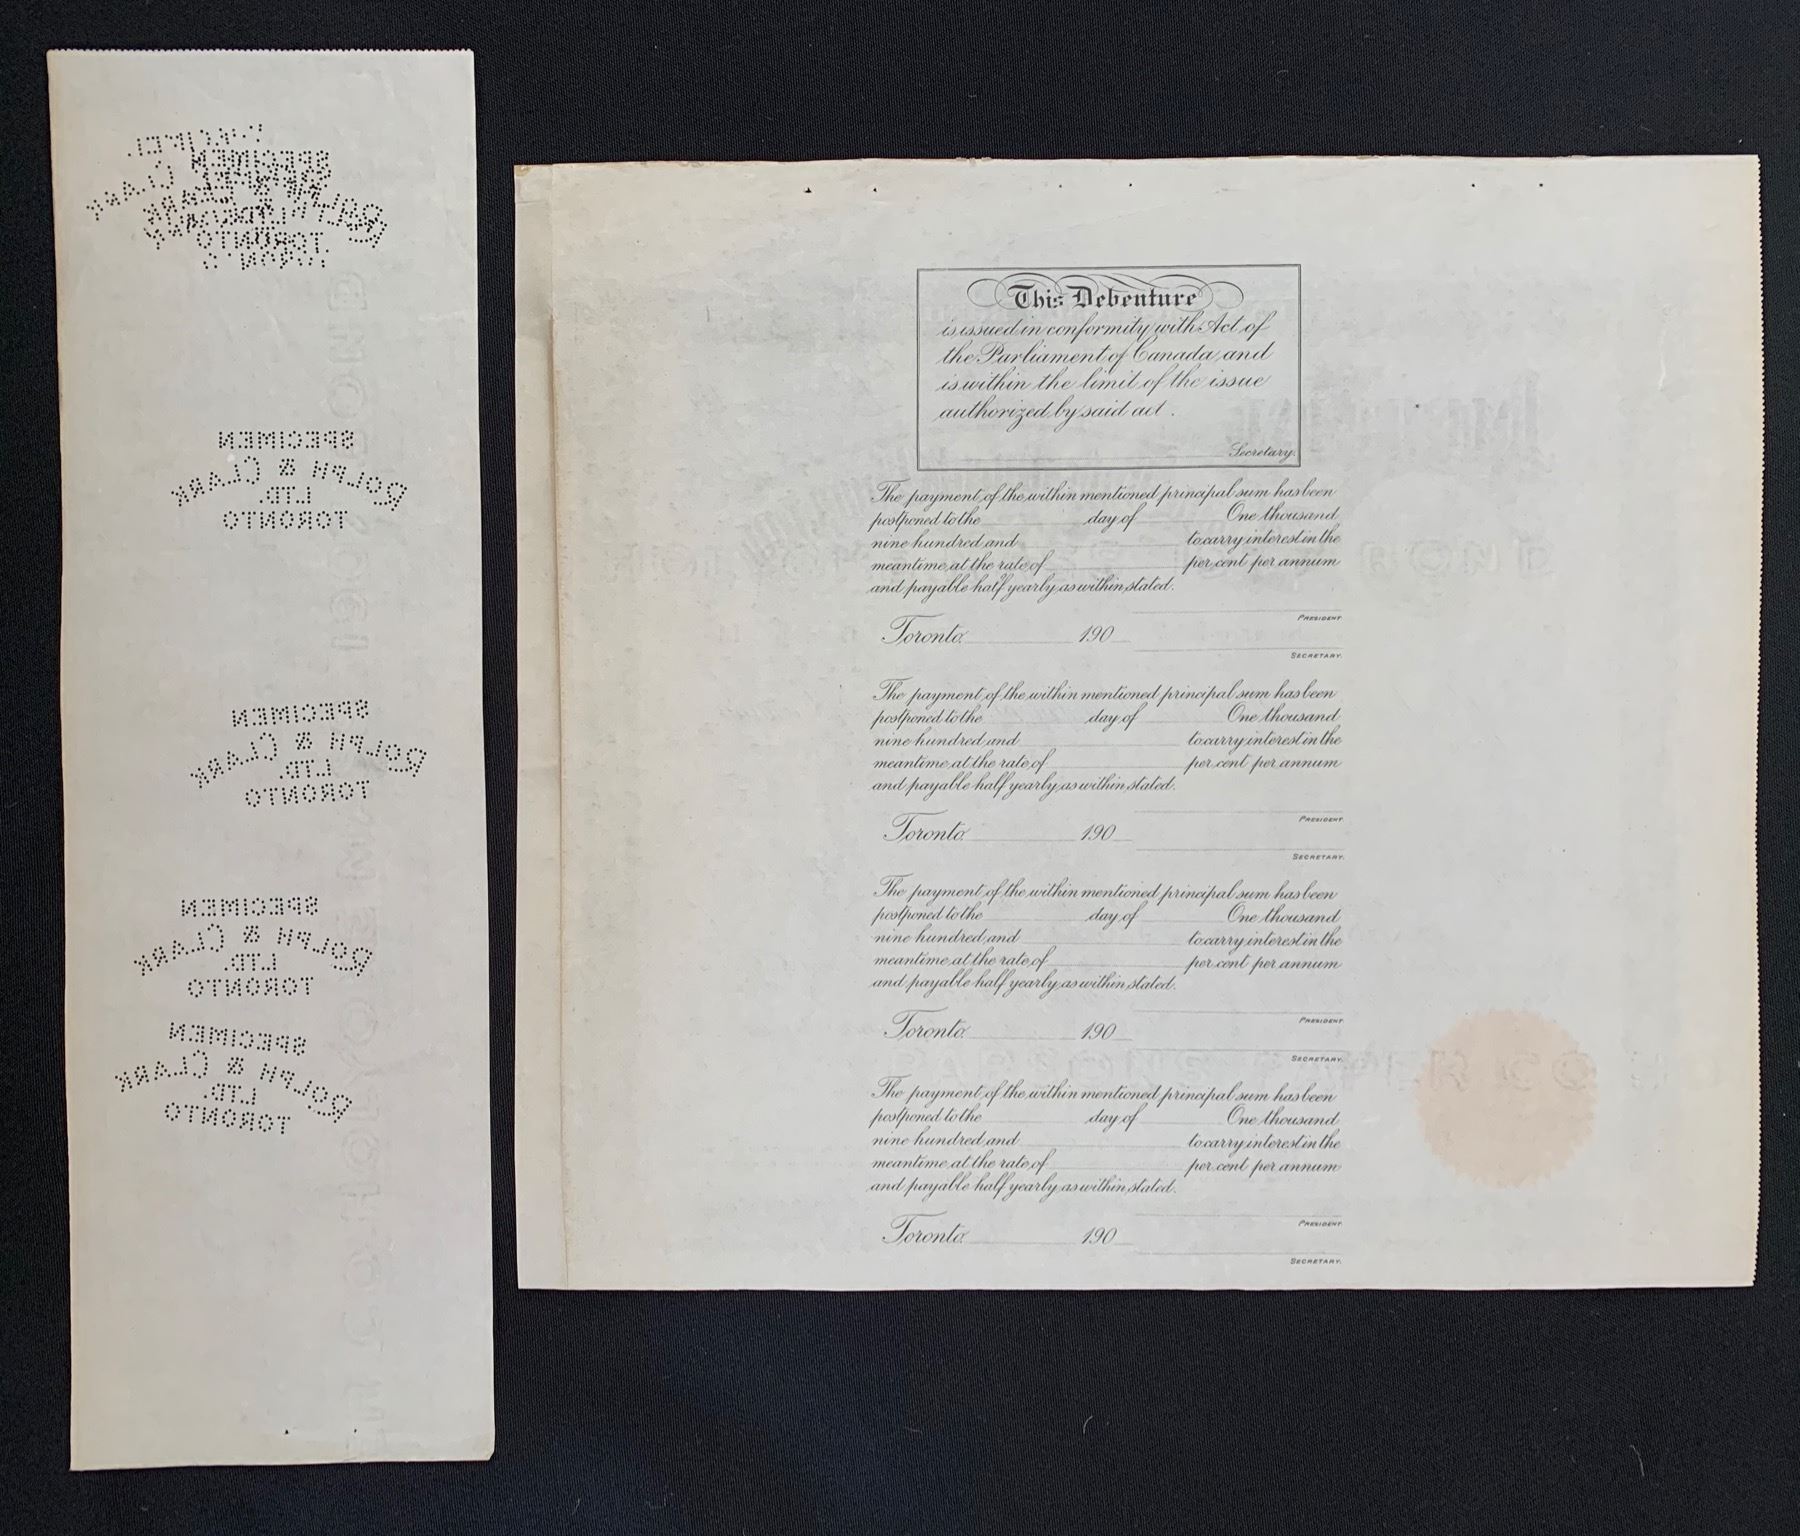 SPECIMEN
ROLPH & CLARK
LTD.
TORONTO
SPECIMEN
ROLPH & CLARK
LTD.
TORONTO
SPECIMEN
ROLPH & CLARK
LTD.
TORONTO
SPECIMEN
ROLPH & CLARK
LTD.
TORONTO
SPECIMEN
ROLPH & CLARK
LTD.
TORONTO
This Debenture
is issued in conformity with Act of
the Parliament of Canada and
is within the limit of the issue
authorized by said act.
Secretary.
The payment of the within mentioned principal sum has been
postponed to the day of One thousand
nine hundred and to carry interest in the
meantime at the rate of per cent per annum
and payable half yearly as within stated.
PRESIDENT.
Toronto 190
SECRETARY.
The payment of the within mentioned principal sum has been
postponed to the day of One thousand
nine hundred and to carry interest in the
meantime at the rate of per cent per annum
and payable half yearly as within stated.
PRESIDENT.
Toronto 190
SECRETARY.
The payment of the within mentioned principal sum has been
postponed to the day of One thousand
nine hundred and to carry interest in the
meantime at the rate of per cent per annum
and payable half yearly as within stated.
PRESIDENT.
Toronto 190
SECRETARY.
The payment of the within mentioned principal sum has been
postponed to the day of One thousand
nine hundred and to carry interest in the
meantime at the rate of per cent per annum
and payable half yearly as within stated.
PRESIDENT.
Toronto 190
SECRETARY.